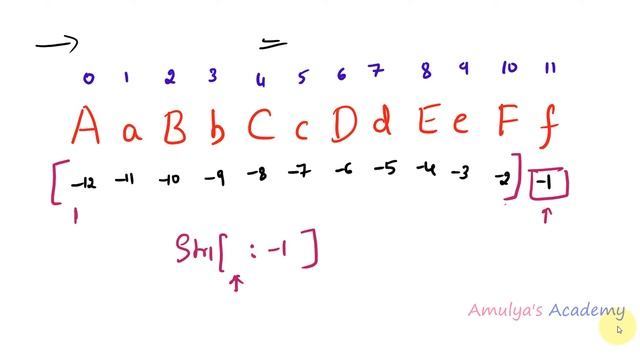 0 1 2 3 4 5 6 7 8 9 10 11
A a B b C c D d E e F f
[-12 -11 -10 -9 -8 -7 -6 -5 -4 -3 -2] -1
Str1[ : -1 ]
Amulya's Academy